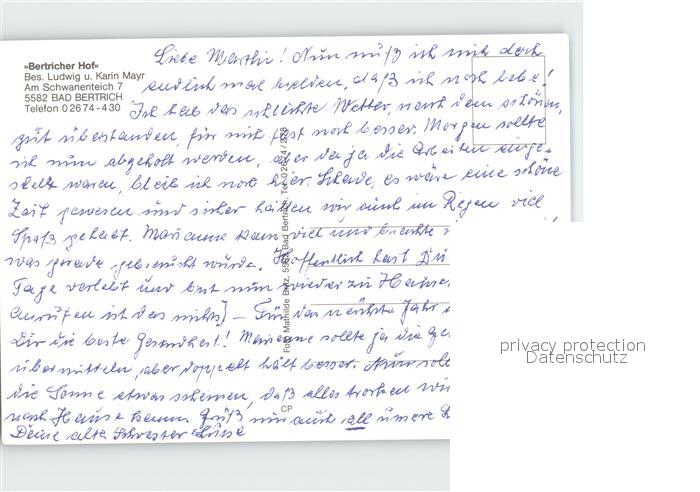 »Bertricher Hof«
Bes. Ludwig u. Karin Mayr
Am Schwanenteich 7
5582 BAD BERTRICH
Telefon 0 26 74 - 430
Liebe ! Nun muß ich mich doch
endlich mal melden, daß ich noch lebe!
Ich hab das schlechte Wetter, nach dem schönen,
gut überstanden, für mich fast noch besser. Morgen sollte
ich nun abgeholt werden, aber da ja die Arbeiten einge-
stellt waren, bleib ich noch hier. Schade, es wäre eine schöne
Zeit gewesen und sicher hätten wir auch im Regen viel
Spaß gehabt. Marianne kam viel und brachte
was gerade gebraucht wurde. Hoffentlich hast Du
Tage verlebt und bist nun wieder zu Hause
Anrufen ist das nichts) – Für das nächste Jahr
Dir die beste Gesundheit! Marianne sollte ja die
übermitteln, aber doppelt hält besser. Nun soll
die Sonne etwas scheinen, daß alles trocken wird
nach Hause kann. Grüß mir auch all unsere
Deine alte Schwester Luise
Foto Mathilde Bitz, 5582 Bad Bertrich, Tel. 0 26 74 / 278
CP
privacy protection
Datenschutz